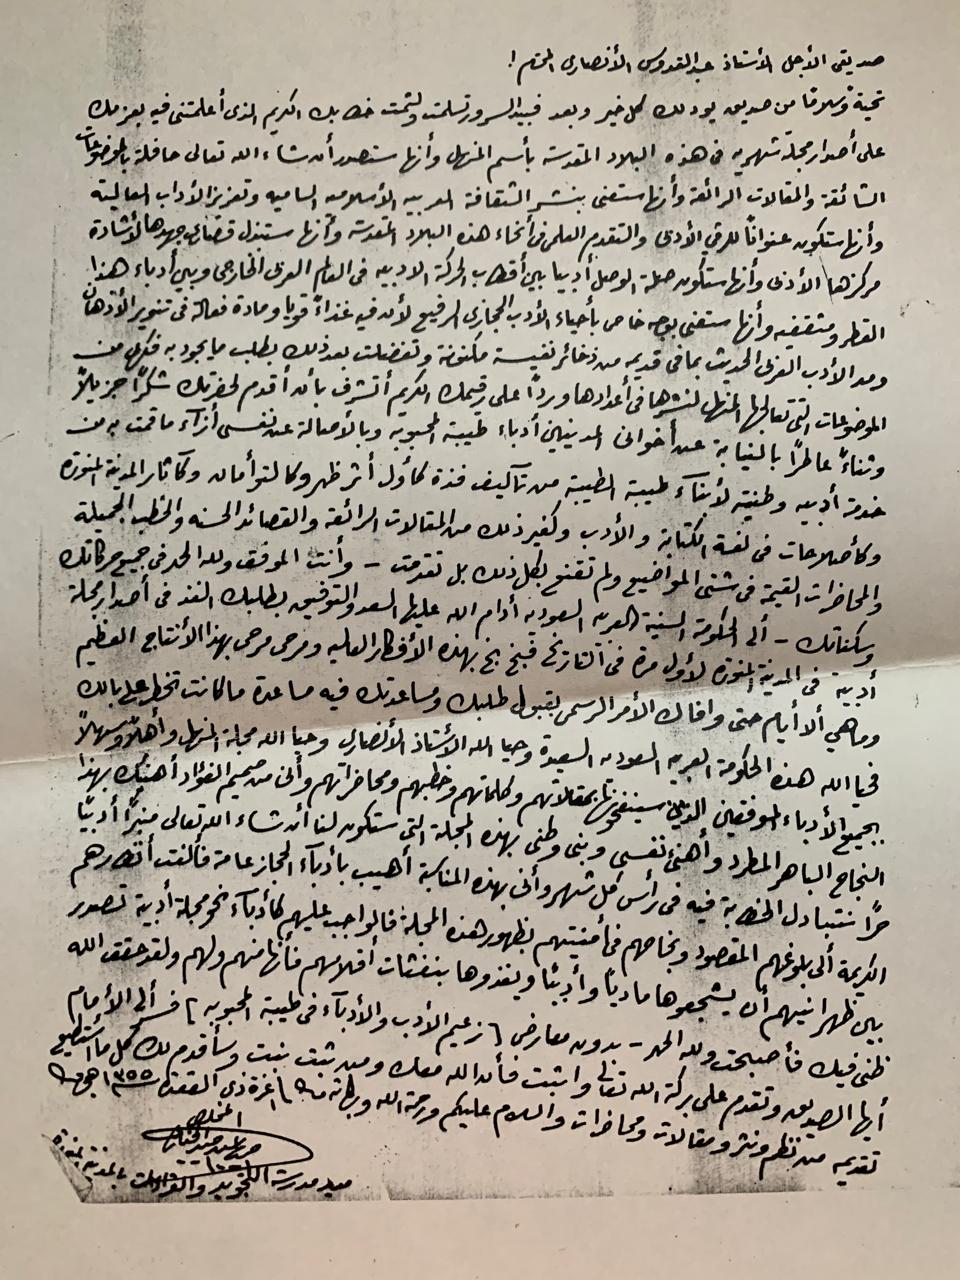 صديقى الأجل الأستاذ عبدالقدوس الأنصارى المحترم !
تحية وسلاما من صديق يود لك كل خير وبعد فبيد السرور تسلمت ولثمت خطابك الكريم الذى أعلمتنى فيه بعزمك
على أصدار مجلة شهريه فى هذه البلاد المقدسة بأسم المنهل وأنها ستصدر أن شاء الله تعالى حافلة بالموضوعات
الشائقة والمقالات الرائقة وأنها ستعنى بنشر الثقافة العربيه الأسلاميه الساميه وتعزيز الأداب العاليته
وأنها ستكون عنواناً للرقي الأدبى والتقدم العلمى فى أنحاء هذه البلاد المقدسة وأنها ستبذل قصارى جهدها لأشادة
مركزها الأدبى وأنها ستكون صلة الوصل أدبيا بين أقطاب الحركة الادبيه فى العالم العربى الخارجى وبين أدباء هذا
القطر ومثقفيه وأنها ستعنى بوجه خاص بأحياء الأدب الحجازى الرفيع لأن فيه غذاءً قويا ومادة فعالة فى تنوير الأذهان
ومد الأدب العربى الحديث بما فى قديمه من ذخائر نفيسة مكنونة وتفضلت بعد ذلك بطلب ما يجود به فكرى من
الموضوعات التى تعالجها المنهل لنشرها فى أعدادها ورداً على رقيمك الكريم أتشرف بأن أقدم لحضرتك شكرًا جزيلاً
وثناءً عاطرًا بالنيابة عن أخوانى المدنيين أدباء طيبة المحبوبه وبالأصالة عن نفسى أزآء ما قمت به من
خدمة أدبيه وطنيته لأبنآء طيبة الطيبة من تآليف فذة كأول أثر ظهر وكالتوأمان وكآثار المدينة المنورة
وكأصلاحات فى لغة الكتابة والأدب وكغير ذلك من المقالات الرائقة والقصائد الحسنه والخطب الجميلة
والمحاضرات القيمة فى شتى المواضيع ولم تقنع بكل ذلك بل تقدمت - وأنت الموفق ولله الحمد فى جميع حركاتك
وسكناتك - ألى الحكومة السنية العربيه السعوديه أدام الله عليها السعد والتوفيق بطلبك الفذ فى أصدار مجلة
أدبية فى المدينة المنورة لأول مرة فى التاريخ فبخ بخ بهذه الأفكار العليه ومرحى مرحى بهذا الأنتاج العظيم
وما هي ألا أيام حتى وافاك الأمر الرسمى بقبول طلبك ومساعدتك فيه مساعدة ما كانت تخطر على بالك
فحيا الله هذه الحكومة العربيه السعوديه السعيدة وحيا الله الأستاذ الأنصارى وحيا الله مجلة المنهل وأهلاً وسهلاً
بجميع الأدباء الموفقين الذين سينفحونها بمقالاتهم وكلماتهم وخطبهم ومحاضراتهم وأنى من صميم الفؤاد أهنئك بهذا
النجاح الباهر المطرد وأهنئ نفسى وبنى وطنى بهذه المجلة التى ستكون لنا أن شاء الله تعالى منبرًا أدبيًا
حرًا نتبادل الخطابة فيه فى رأس كل شهر وأنى بهذه المناسبة أهيب بأدبآء الحجاز عامة فألفت أنظارهم
الكريمة ألى بلوغهم المقصود ونجاحهم فى أمنيتهم بظهور هذه المجلة فالواجب عليهم كأدبآء نحو مجلة أدبية تصدر
بين ظهرانيهم أن يشجعوها ماديًا وأدبيًا ويغذوها بنفثات أقلامهم فأنها منهم ولهم ولقد حقق الله
ظنى فيك فأصبحت ولله الحمد - بدون معارض ) زعيم الأدب والأدباء فى طيبة المحبوبه ) فسر ألى الأمام
أيها الصديق وتقدم على بركة الله تعالى وأثبت فأن الله معك ومن ثبت نبت وسأقدم لك كل ما أستطيع
تقديمه من نظم ونثر ومقالات ومحاضرات والسلام عليكم ورحمة الله وبركاته غرة ذى القعدة ١٣٥٥ هجرية
المخلص
مدير مدرسة التجويد والقراءات بالمدينة المنورة